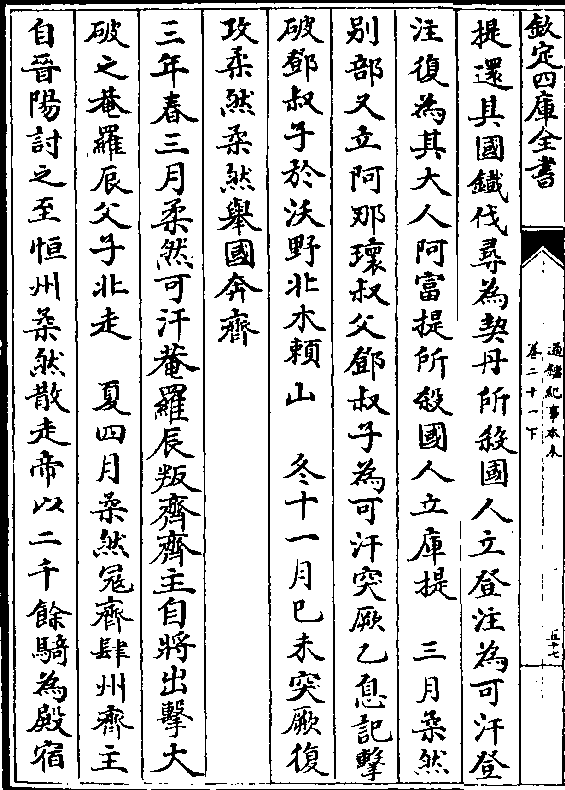 欽定四庫全書
通鑑紀事本末
卷二十一下
五十七
提還其國鐵伐尋為契丹所殺國人立登注為可汗登
注復為其大人阿富提所殺國人立庫提　三月柔然
别部又立阿那瓌叔父鄧叔子為可汗突厥乙息記擊
破鄧叔子於沃野北木賴山　冬十一月己未突厥復
攻柔然柔然舉國奔齊
三年春三月柔然可汗菴羅辰叛齊齊主自將出擊大
破之菴羅辰父子北走　夏四月柔然寇齊肆州齊主
自晉陽討之至恒州柔然散走帝以二千餘騎為殿宿